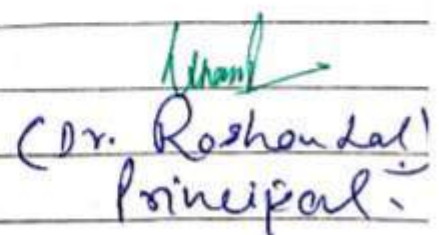 (Dr. Roshan Lal)
Principal.